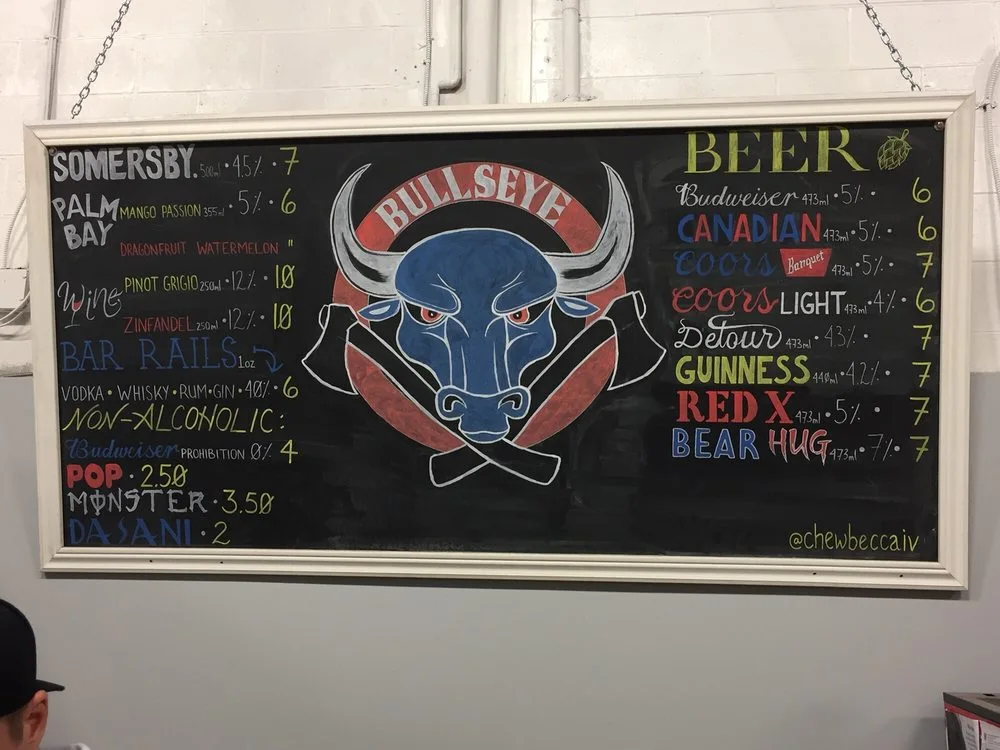 SOMERSBY. 500ml • 4.5% • 7
PALM BAY MANGO PASSION 355ml • 5% • 6
DRAGONFRUIT WATERMELON "
Wine PINOT GRIGIO 250ml • 12% • 10
ZINFANDEL 250ml • 12% • 10
BAR RAILS 1oz
VODKA • WHISKY • RUM • GIN • 40% • 6
NON-ALCOHOLIC:
Budweiser PROHIBITION 0% 4
POP • 2.50
MONSTER • 3.50
DASANI • 2
BULLSEYE
BEER
Budweiser 473ml • 5% • 6
CANADIAN 473ml • 5% • 6
Coors Banquet 473ml • 5% • 7
Coors LIGHT 473ml • 4% • 6
Detour 473ml • 4.3% • 7
GUINNESS 440ml • 4.2% • 7
RED X 473ml • 5% • 7
BEAR HUG 473ml • 7% • 7
@chewbeccaiv